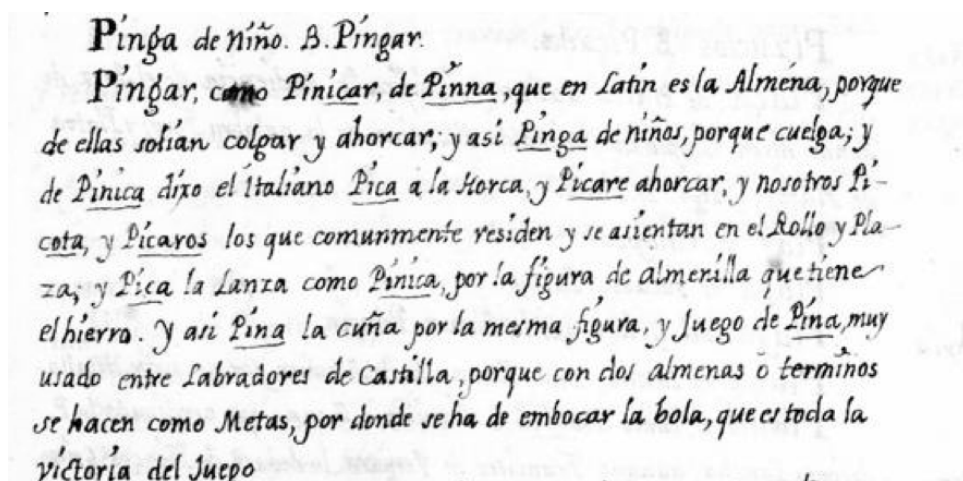 Pinga de niño. B. Pingar.
Pingar, como Pinicar, de Pinna, que en Latin es la Almena, porque
de ellas solian colgar y ahorcar; y asi Pinga de niños, porque cuelga; y
de Pinica dixo el Italiano Pica a la Horca, y Picare ahorcar, y nosotros Pi-
cota, y Picaros los que comunmente residen y se asientan en el Rollo y Pla-
za; y Pica la Lanza como Pinica, por la figura de almenilla que tiene
el hierro. Y asi Pina la cuña por la mesma figura, y Juego de Pina, muy
usado entre Labradores de Castilla, porque con dos almenas o terminos
se hacen como Metas, por donde se ha de embocar la bola, que es toda la
victoria del Juego